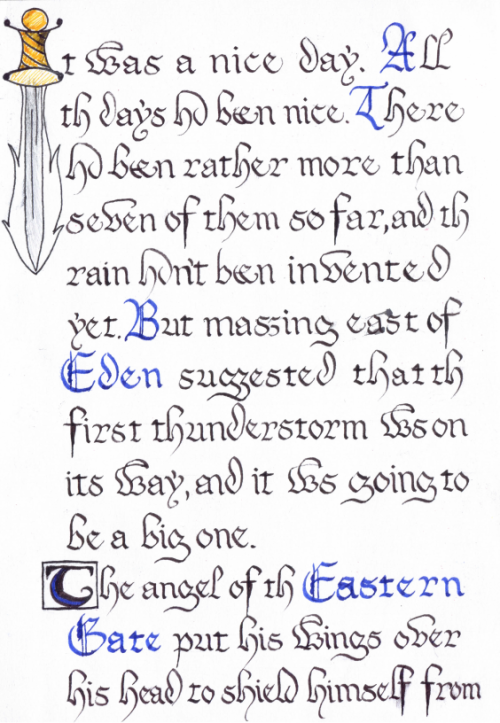 It was a nice day. All
th days hd been nice. There
hd been rather more than
seven of them so far, and th
rain hdn't been invented
yet. But massing east of
Eden suggested that th
first thunderstorm ws on
its way, and it ws going to
be a big one.
The angel of th Eastern
Gate put his wings over
his head to shield himself from